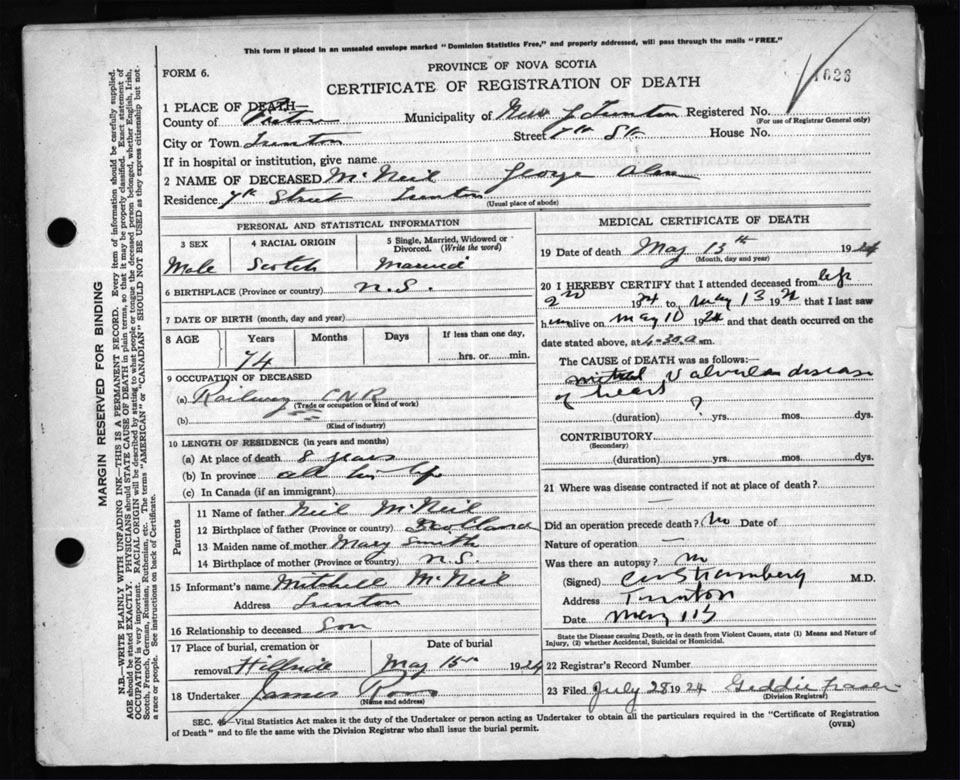 This form if placed in an unsealed envelope marked "Dominion Statistics Free," and properly addressed, will pass through the mails "FREE."
PROVINCE OF NOVA SCOTIA
FORM 6.
CERTIFICATE OF REGISTRATION OF DEATH
1 PLACE OF DEATH—
County of Pictou Municipality of New Trenton Registered No.
(For use of Registrar General only)
City or Town Trenton Street 7th St House No.
If in hospital or institution, give name
2 NAME OF DECEASED McNeil George Alan
Residence 7th Street Trenton
(Usual place of abode)
PERSONAL AND STATISTICAL INFORMATION
3 SEX 4 RACIAL ORIGIN 5 Single, Married, Widowed or Divorced. (Write the word)
Male Scotch Married
6 BIRTHPLACE (Province or country) N.S.
7 DATE OF BIRTH (month, day and year)
8 AGE Years Months Days If less than one day,
74 hrs. or min.
9 OCCUPATION OF DECEASED
(a) Railway CNR
(Trade or occupation or kind of work)
(b)
(Kind of industry)
10 LENGTH OF RESIDENCE (in years and months)
(a) At place of death 8 years
(b) In province all his life
(c) In Canada (if an immigrant)
Parents
11 Name of father Neil McNeil
12 Birthplace of father (Province or country) Scotland
13 Maiden name of mother Mary Smith
14 Birthplace of mother (Province or country) N.S.
15 Informant's name Mitchell McNeil
Address Trenton
16 Relationship to deceased Son
17 Place of burial, cremation or Date of burial
removal Hillside May 15 1924
18 Undertaker James Ross
(Name and address)
MEDICAL CERTIFICATE OF DEATH
19 Date of death May 13th 1924
(Month, day and year)
20 I HEREBY CERTIFY that I attended deceased from
2nd 1924 to May 13 1924 that I last saw
him alive on May 10 1924 and that death occurred on
date stated above, at 4-30 a m.
The CAUSE OF DEATH was as follows:—
mitral Valvular disease
of heart
(duration) ? yrs. mos. dys.
CONTRIBUTORY
(Secondary)
(duration) yrs. mos. dys.
21 Where was disease contracted if not at place of death?
Did an operation precede death? No Date of
Nature of operation
Was there an autopsy? no
(Signed) M.D.
Address Trenton
Date May
State the Disease causing Death, or in death from Violent Causes, state (1) Means and Nature of
Injury, (2) whether Accidental, Suicidal or Homicidal.
22 Registrar's Record Number
23 Filed July 28 1924 Geddie Fraser
(Division Registrar)
SEC. Vital Statistics Act makes it the duty of the Undertaker or person acting as Undertaker to obtain all the particulars required in the "Certificate of Registration
of Death" and to file the same with the Division Registrar who shall issue the burial permit.
(OVER)
MARGIN RESERVED FOR BINDING
N.B.—WRITE PLAINLY WITH UNFADING INK—THIS IS A PERMANENT RECORD. Every item of information should be carefully supplied.
AGE should be stated EXACTLY. PHYSICIANS should STATE CAUSE OF DEATH in plain terms, so that it may be properly classified. Exact statement of
OCCUPATION is very important. RACIAL ORIGIN will be described by stating to what people or tongue the deceased person belonged, whether English, Irish,
Scotch, French, German, Russian, Ruthenian, etc. The terms "AMERICAN" or "CANADIAN" SHOULD NOT BE USED as they express citizenship but not
a race or people. See instructions on back of Certificate.